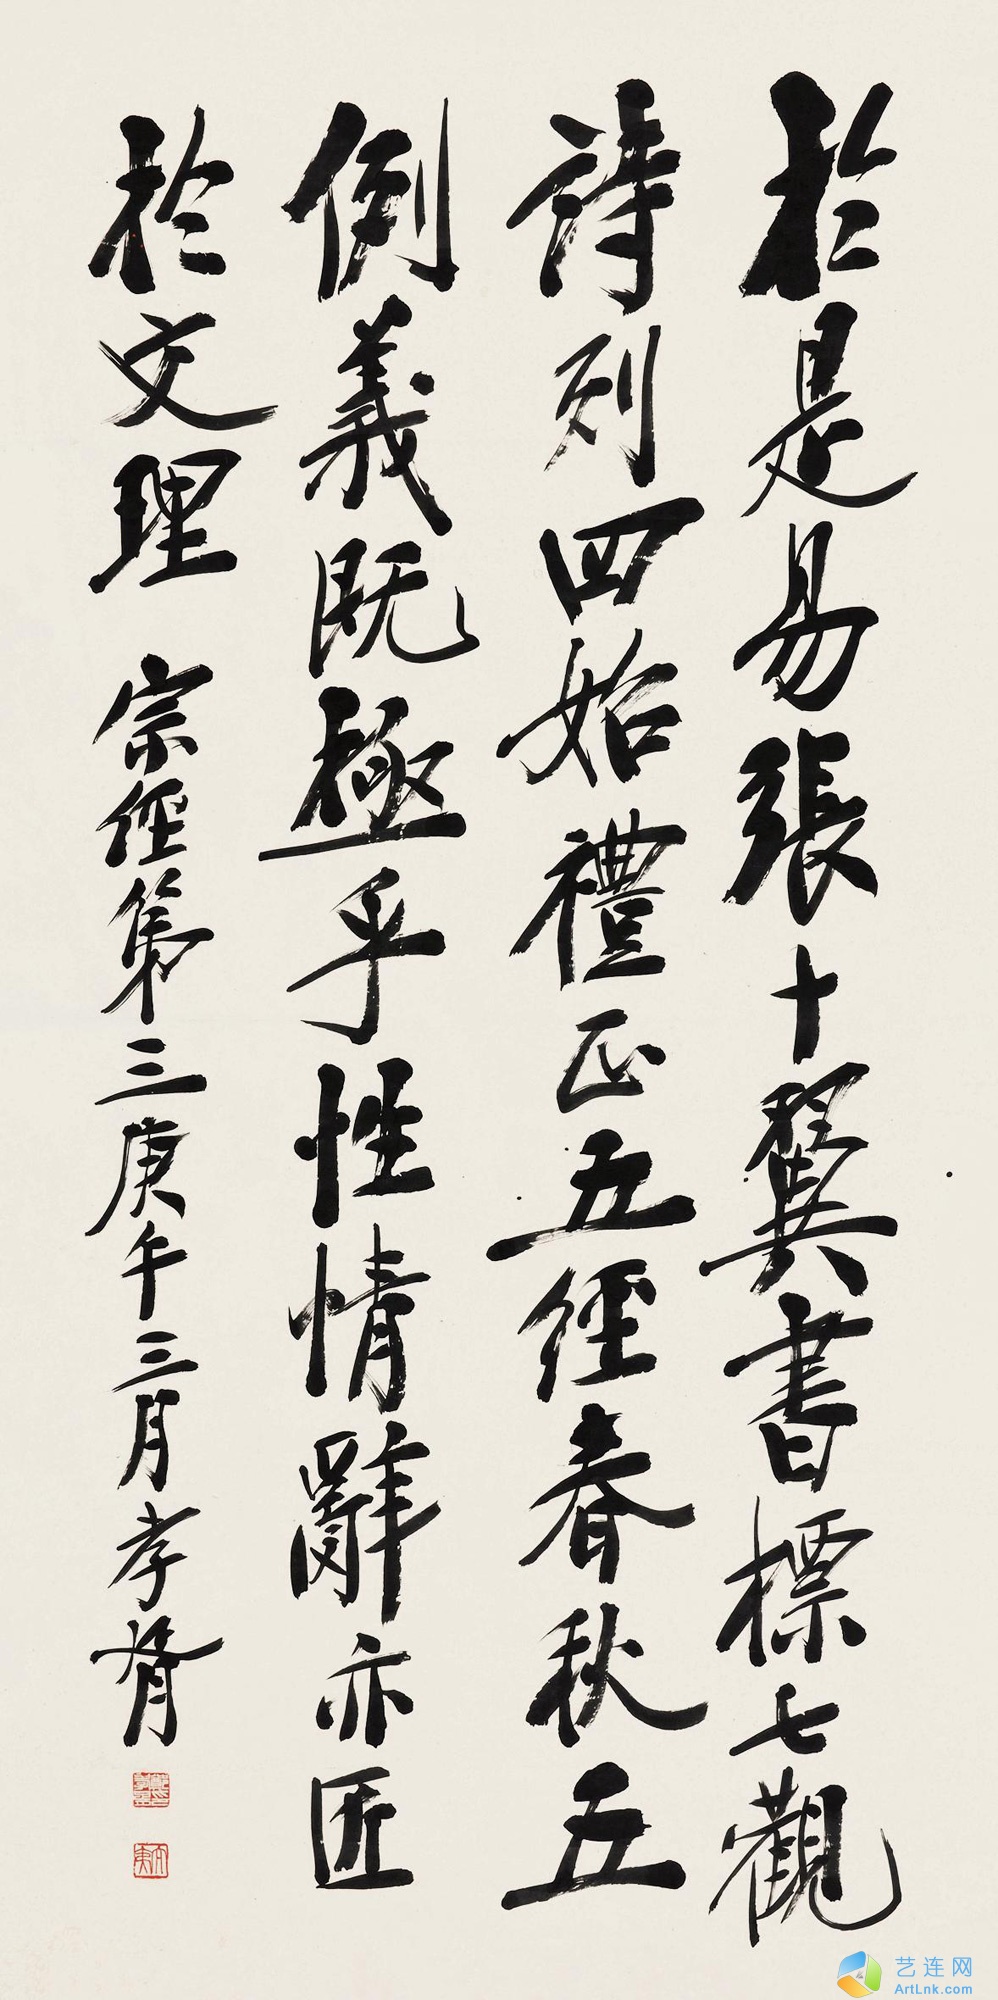 於是易張十翼書標七觀
詩列四始禮正五經春秋五
例義既極乎性情辭亦匠
於文理 宗經第三庚午三月孝胥
艺连网
ArtLnk.com